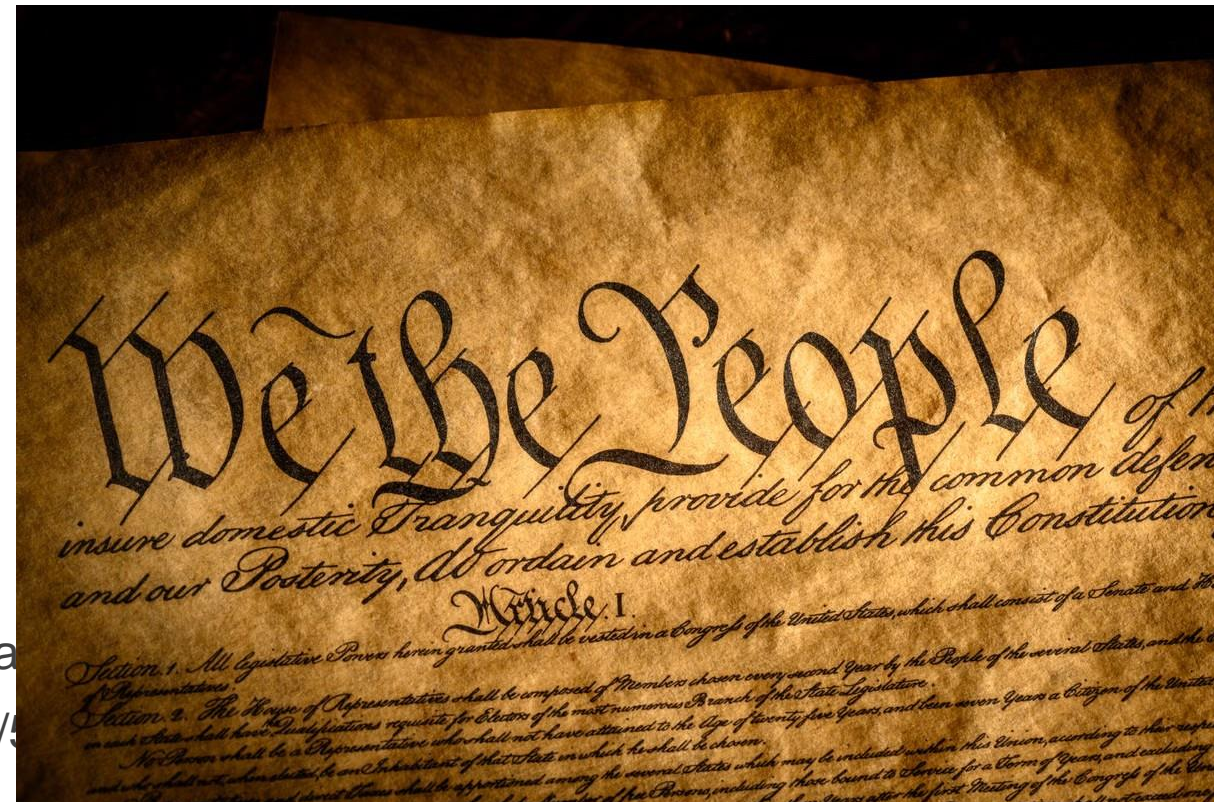 We the People of
insure domestic Tranquility, provide for the common defen
and our Posterity, do ordain and establish this Constitution
Article. I.
Section. 1. All legislative Powers herein granted shall be vested in a Congress of the United States, which shall consist of a Senate and
of Representatives.
Section. 2. The House of Representatives shall be composed of Members chosen every second Year by the People of the several States, and the
in each State shall have Qualifications requisite for Electors of the most numerous Branch of the State Legislature.
No Person shall be a Representative who shall not have attained to the Age of twenty five Years, and been seven Years a Citizen of the United
and who shall not, when elected, be an Inhabitant of that State in which he shall be chosen.
shall be apportioned among the several States which may be included within this Union, according to their
of free Persons, including those bound to Service for a Term of Years, and excluding
Years after the first Meeting of the Congress of the